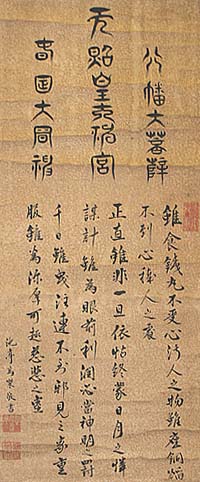 八幡大菩薩
天照皇太神宮
春日大明神
雖食鐵丸不受心汚人之物雖座銅焔
不到心穢人之處
正直雖非一旦依怙終蒙日月之憐
謀計雖為眼前利潤必當神明之罰
千日雖曳注連不到邪見之家重
服雖為深厚可趣慈悲之室
敬書